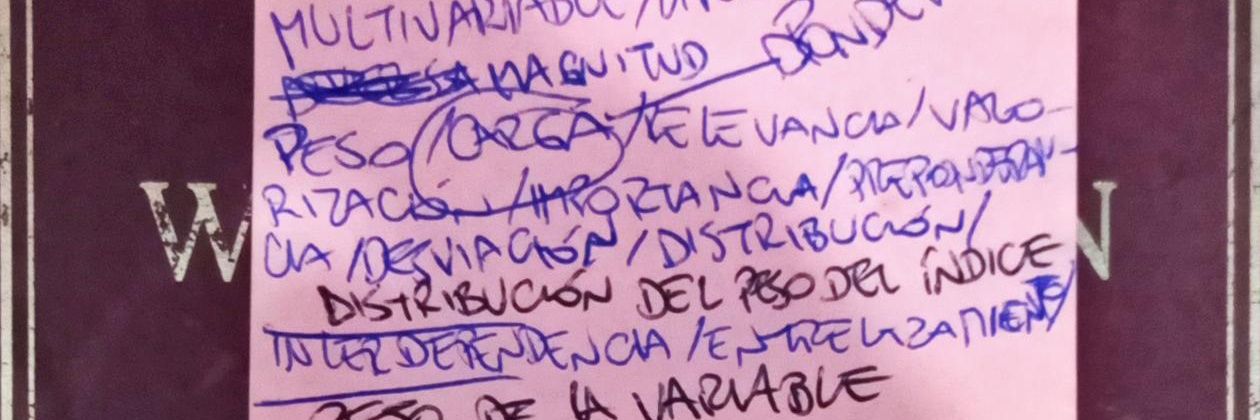 MULTIVARIABLE/
MAGNITUD DÓNDE
PESO/CARGA/RELEVANCIA/VALO-
RIZACIÓN/IMPORTANCIA/PREPONDERAN-
CIA/DESVIACIÓN/DISTRIBUCIÓN/
DISTRIBUCIÓN DEL PESO DEL ÍNDICE
INTERDEPENDENCIA/ENTRELAZAMIENTO
PESO DE LA VARIABLE
W N